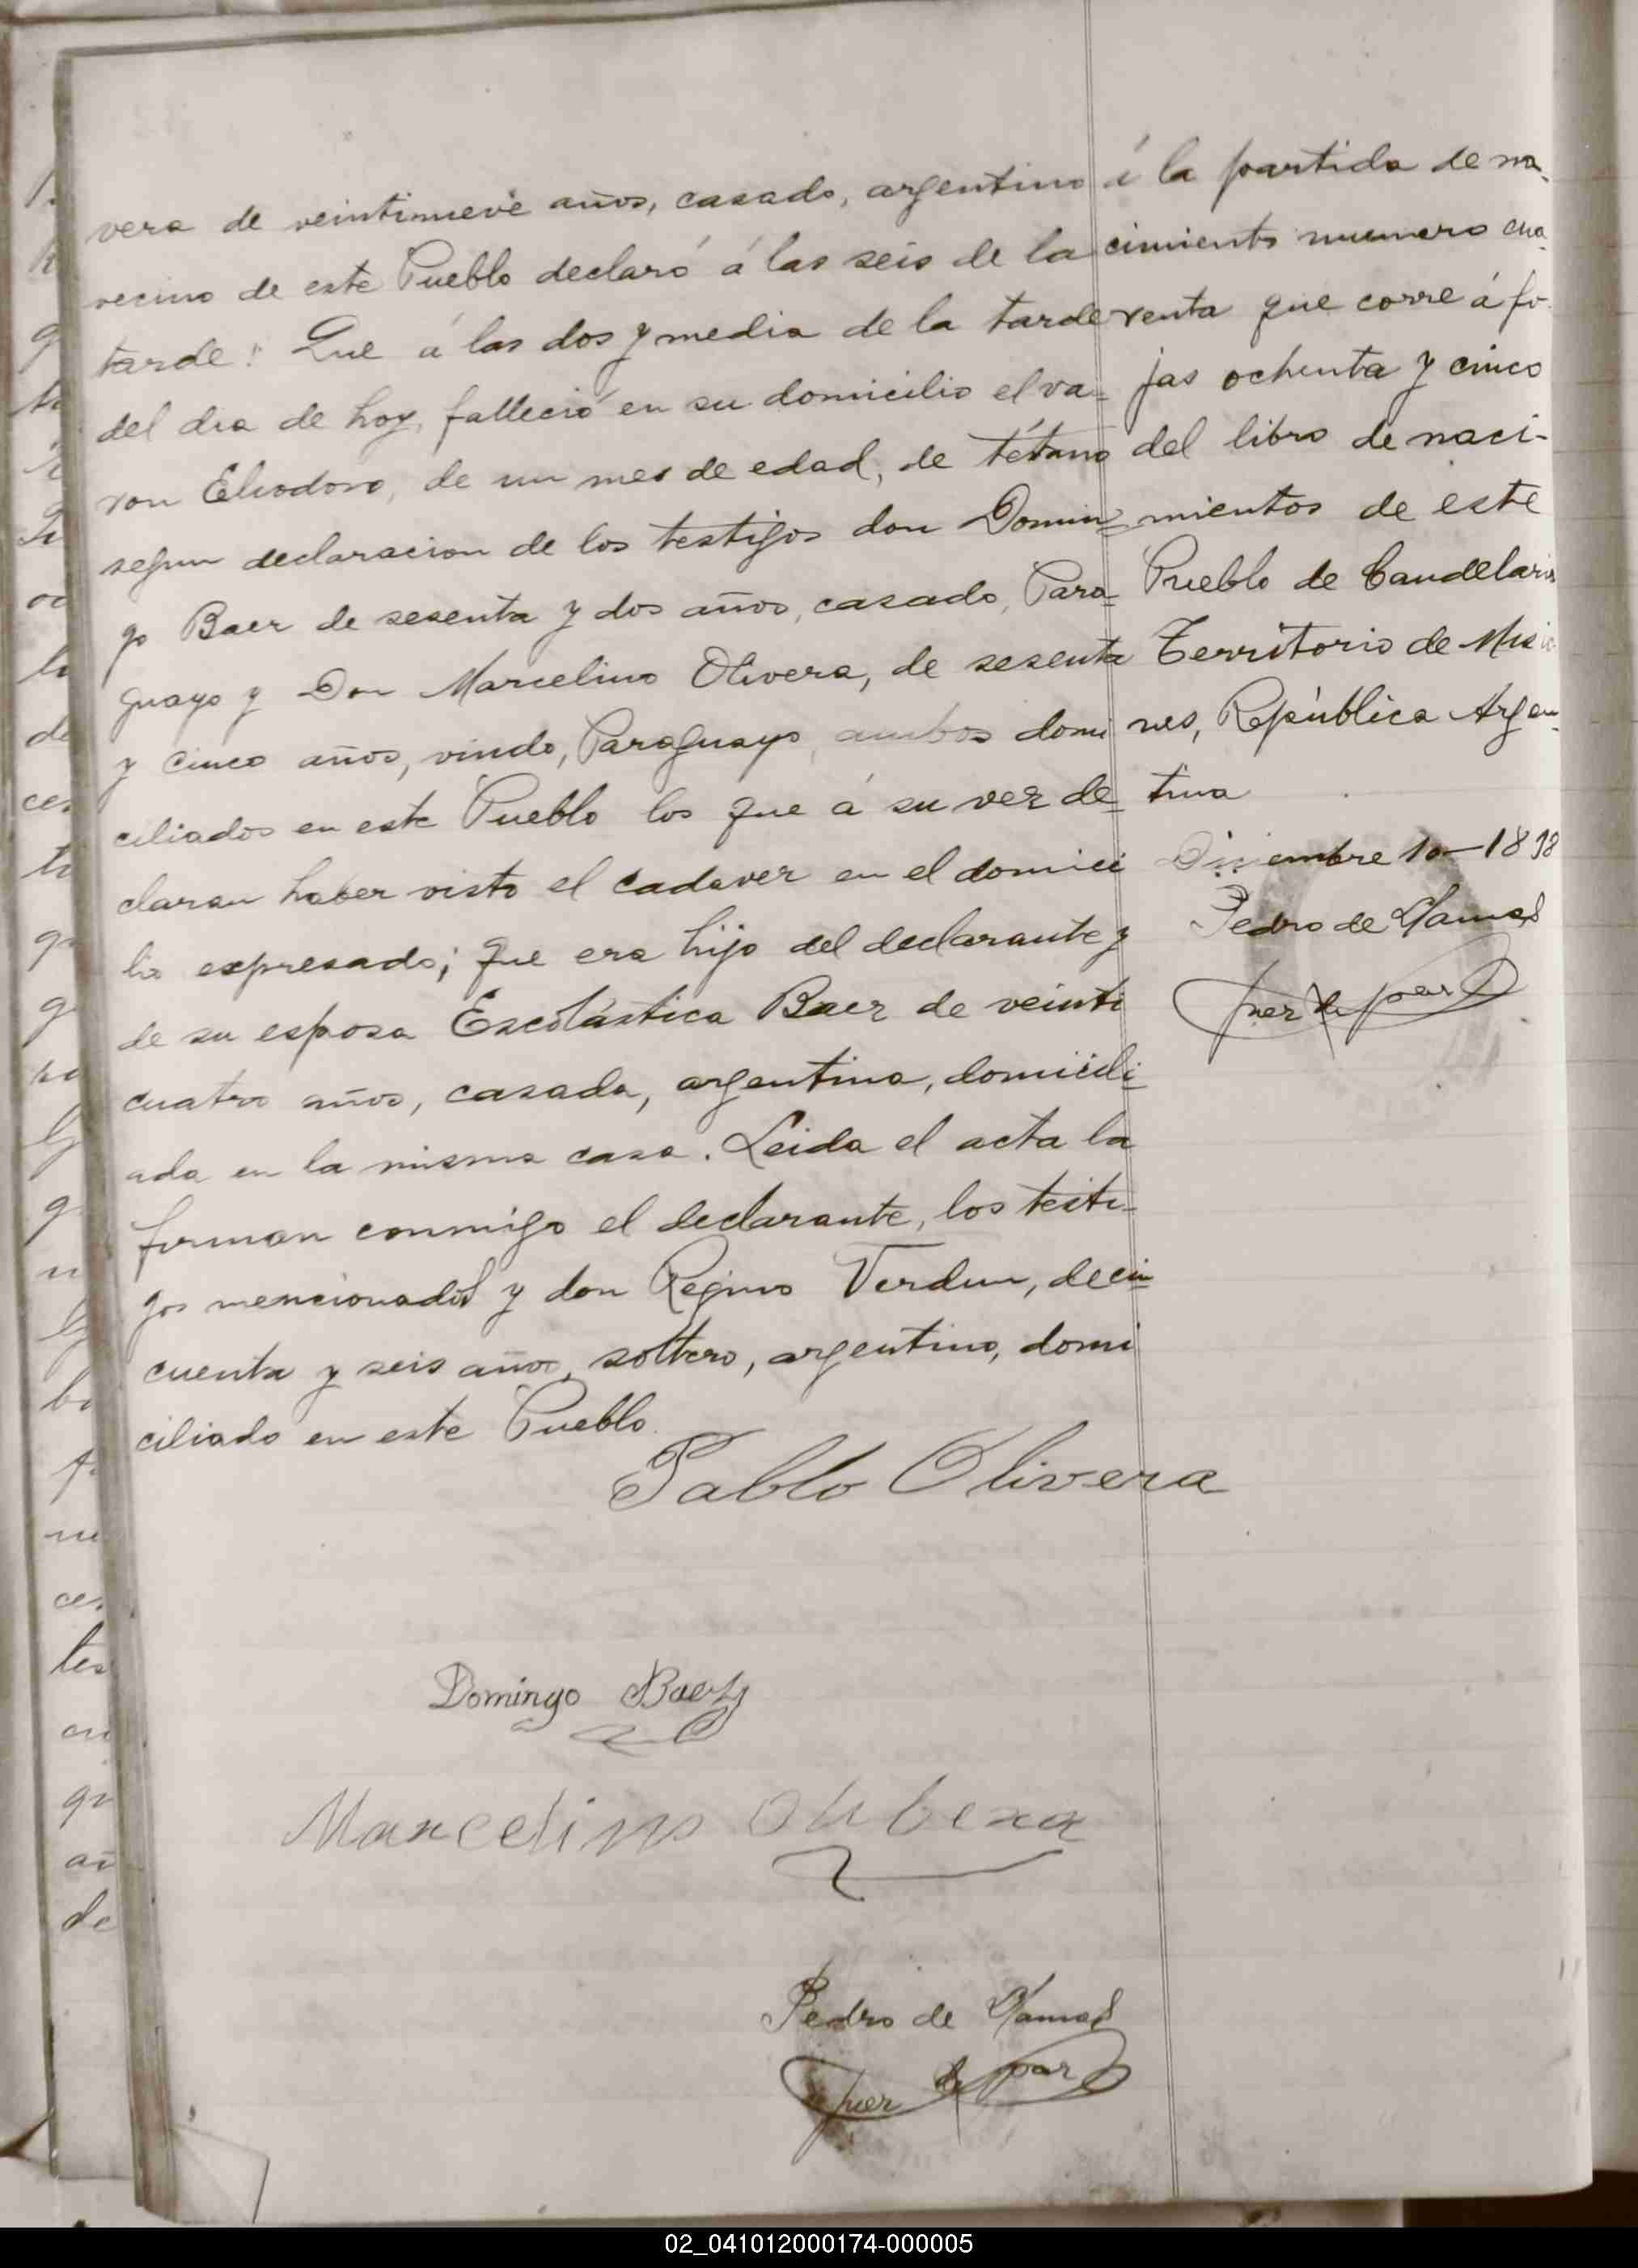 vera de veintinueve años, casado, argentino
vecino de este Pueblo declaró á las seis de la
tarde: Que á las dos y media de la tarde
del dia de hoy, falleció en su domicilio el va=
ron Eliodoro, de un mes de edad, de tétano
segun declaracion de los testigos don Domin=
go Baez de sesenta y dos años, casado, Para=
guayo y Don Marcelino Olivera, de sesenta
y cinco años, viudo, Paraguayo, ambos domi
ciliados en este Pueblo los que á su vez de=
claran haber visto el cadaver en el domici
lio expresado; que era hijo del declarante y
de su esposa Escolástica Baez de veinti
cuatro años, casada, argentina, domicili=
ada en la misma casa. Leida el acta la
firman conmigo el declarante, los testi-
gos mencionados y don Regino Verdun, de cin
cuenta y seis años, soltero, argentino, domi
ciliado en este Pueblo.
á la partida de na-
cimiento numero cua=
renta que corre á fo-
jas ochenta y cinco
del libro de naci-
mientos de este
Pueblo de Candelaria
Territorio de Misio
nes, República Argen=
tina
Diciembre 10-1898
Pedro de Llamas
juez de paz
Pablo Olivera
Domingo Baez
Marcelino Olibera
Pedro de Llamas
juez de paz
02_041012000174-000005